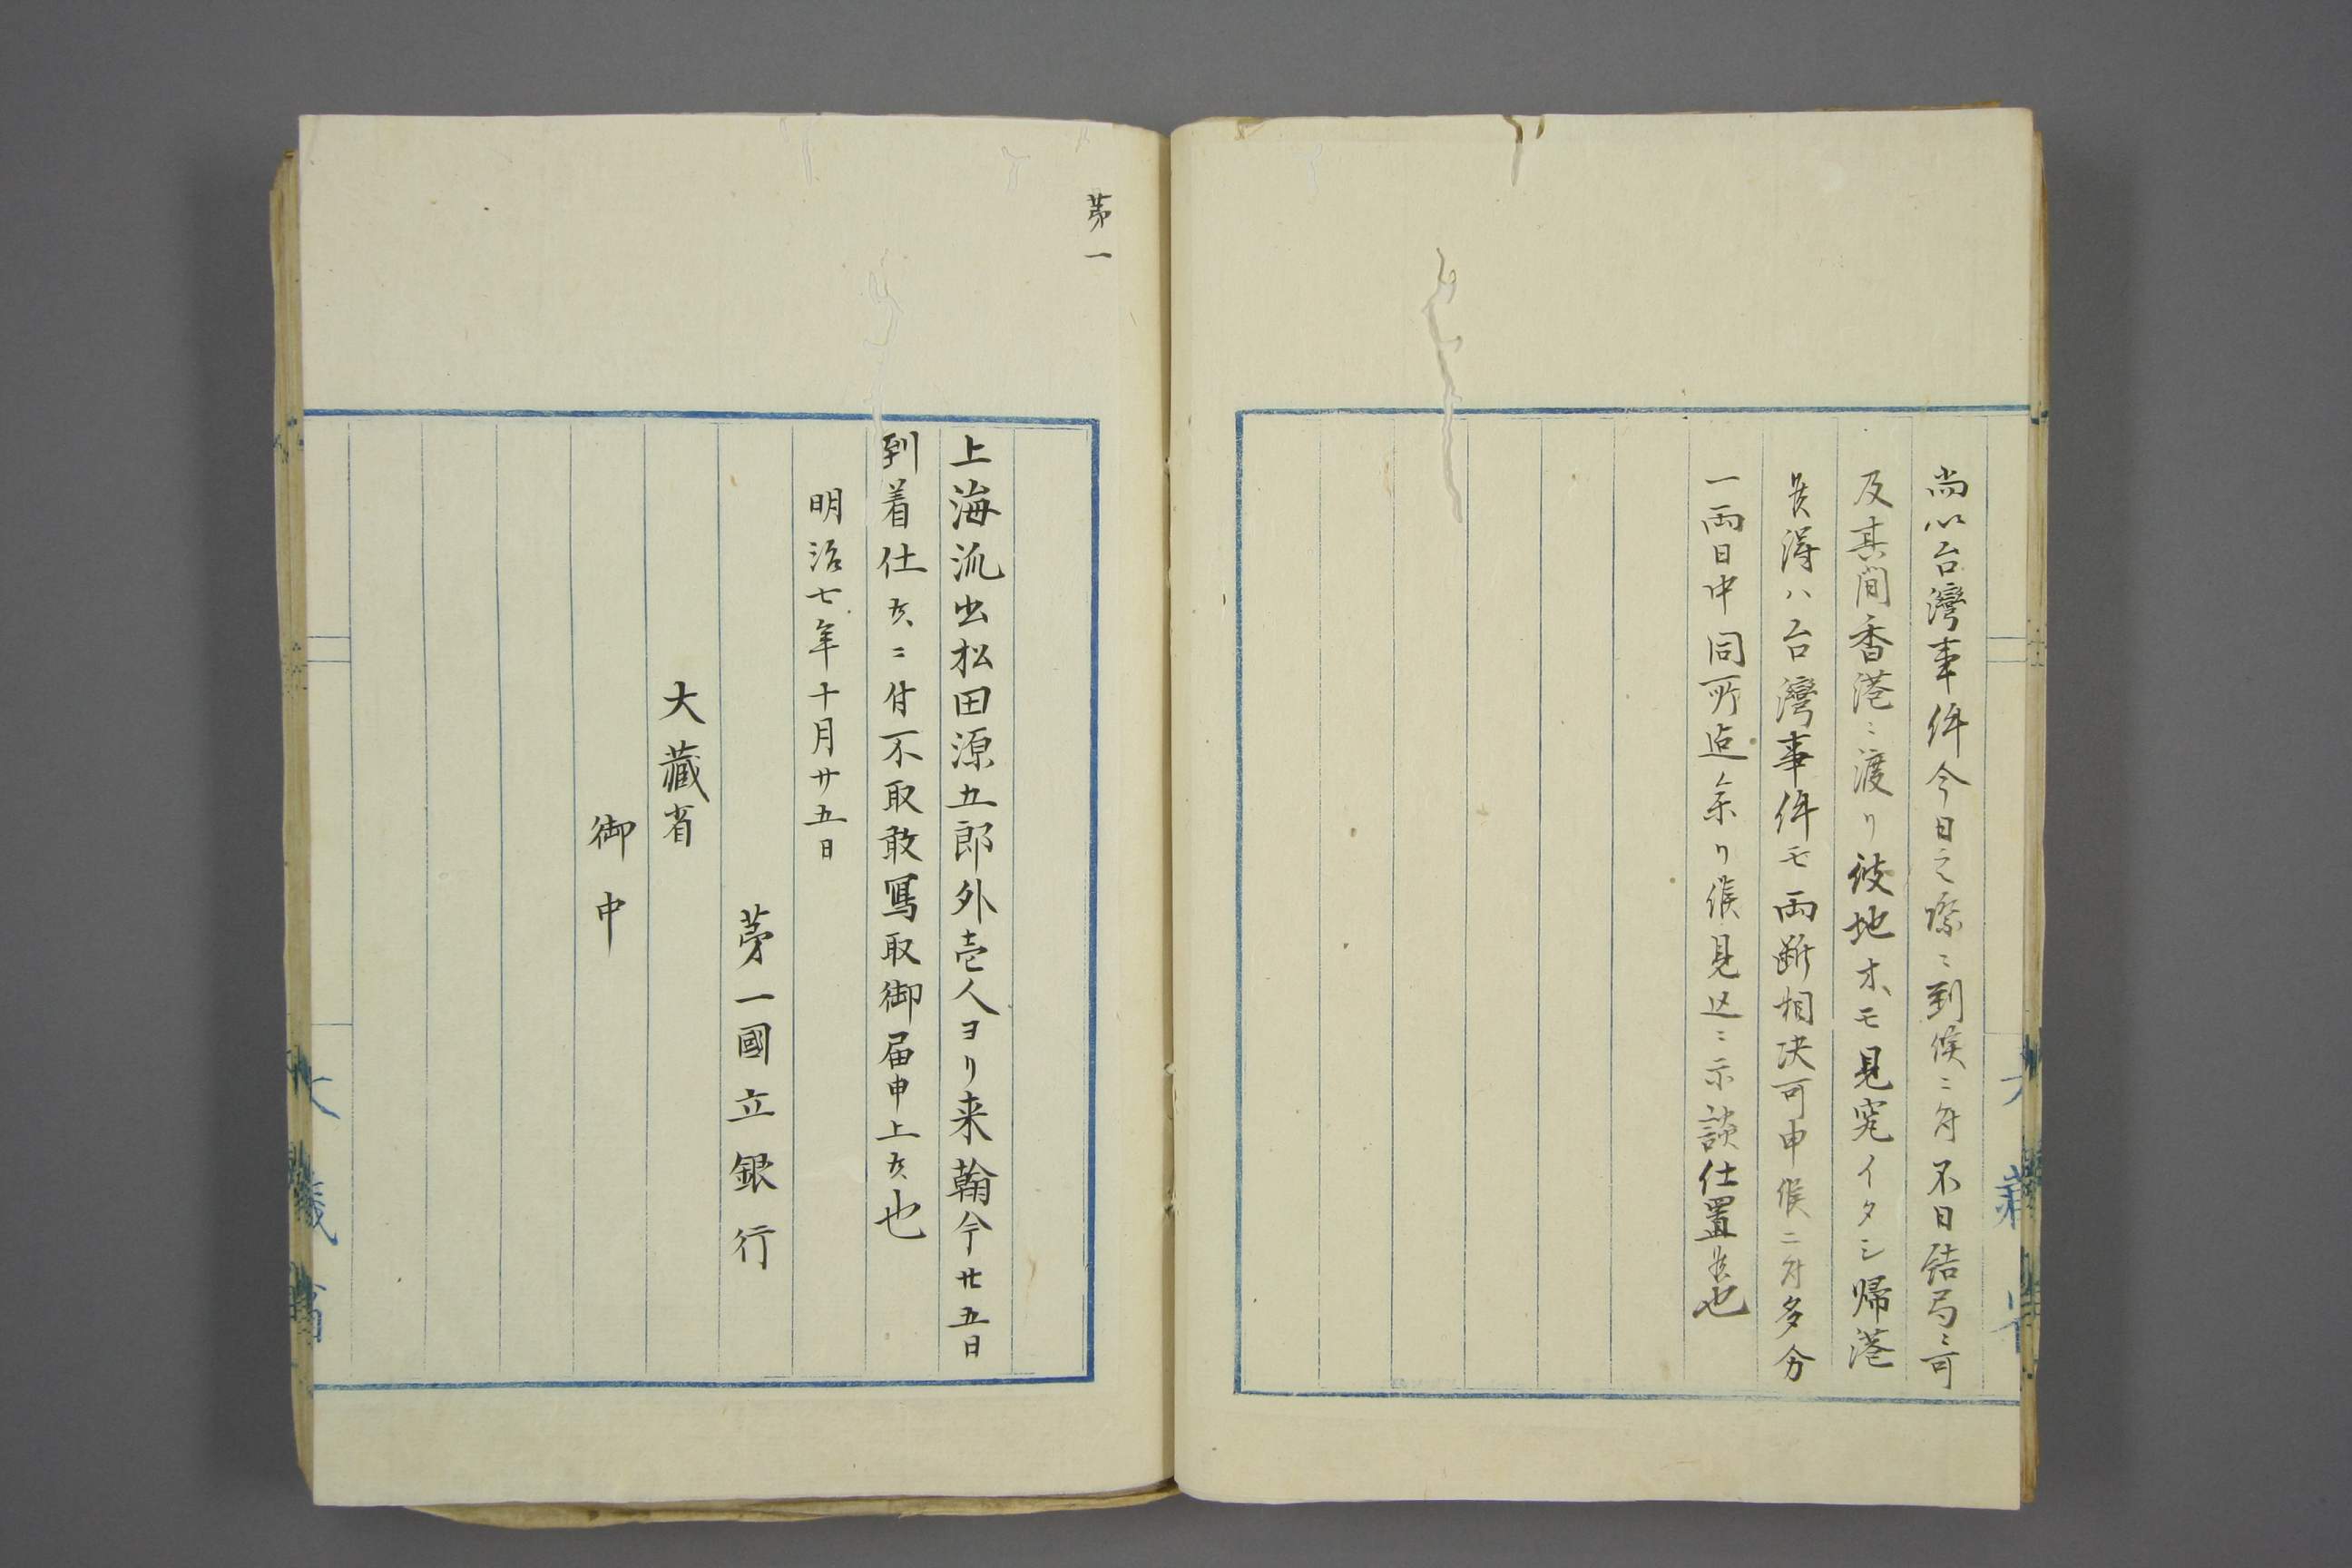 尚以台灣事件今日之際ニ到候ニ付不日結局ニ可
及其間香港ニ渡リ彼地オモ見究イタシ帰港
候得ハ台灣事件モ両断相决可申候ニ付多分
一両日中同所迄参リ候見込ニ示談仕置候也
第一
上海派出松田源五郎外壱人ヨリ来翰今廿五日
到着仕候ニ付不取敢寫取御届申上候也
明治七年十月廿五日
第一國立銀行
大藏省
御中
大藏省